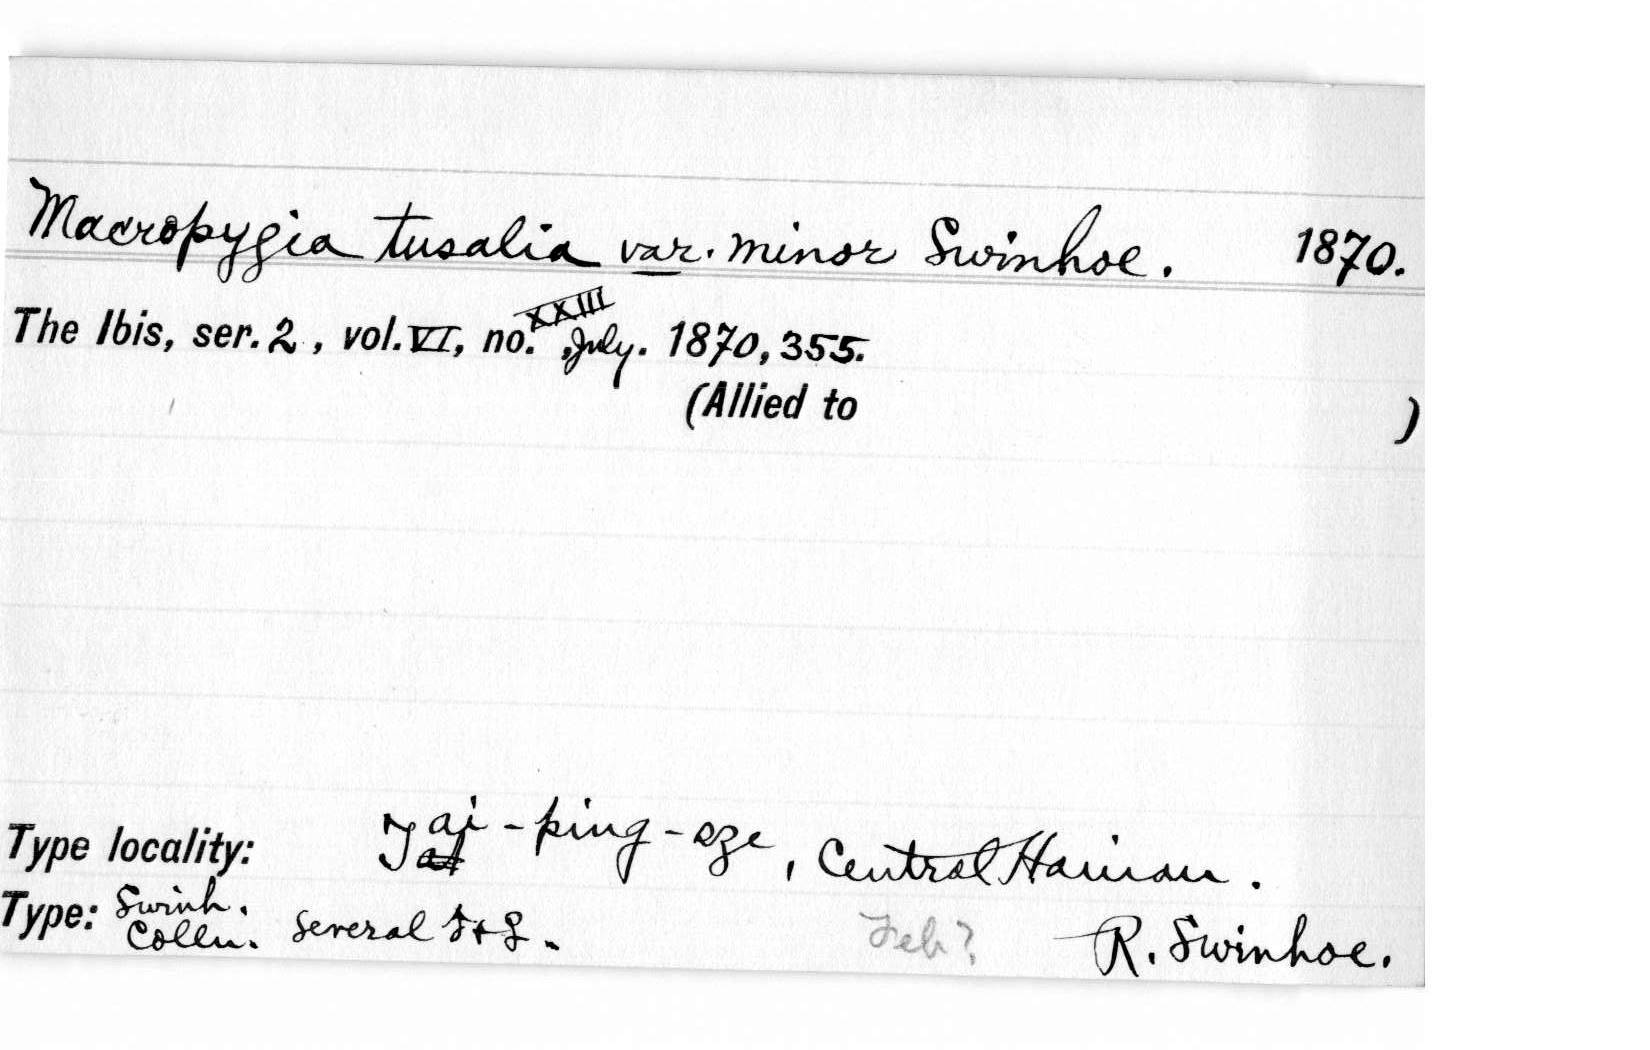 Macropygia tusalia var. minor Swinhoe. 1870.
The Ibis, ser. 2, vol. VI, no. XXIII, July. 1870, 355.
(Allied to )
Type locality: -ping-sze, Central Hainan.
Type: Swinh. Colln. Several ♂ + ♀. Feb? R. Swinhoe.